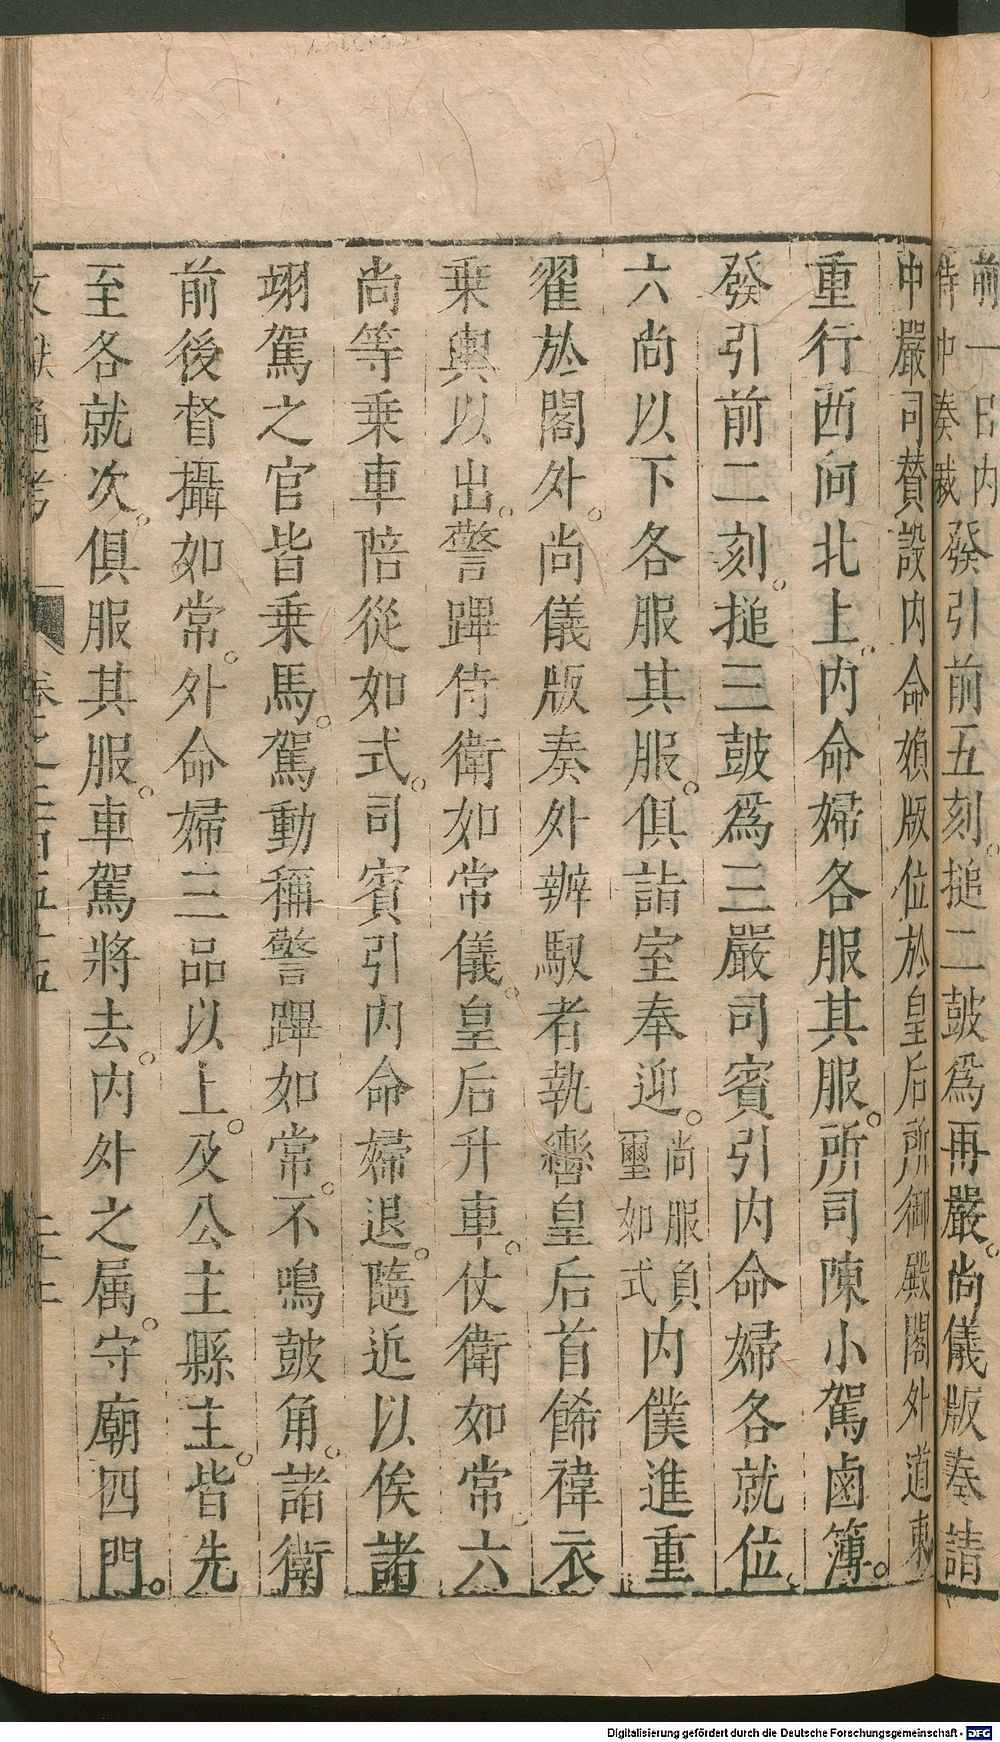 前一日内
侍中奏裁發引前五刻。搥二鼓爲再嚴。尚儀版奏請
中嚴司贊設内命婦版位於皇后所御殿閤外道東
重行西向北上。内命婦各服其服。所司陳小駕鹵簿。
發引前二刻。搥三鼓爲三嚴司賓引内命婦各就位。
六尚以下各服其服。俱詣室奉迎。尚服負璽如式内僕進重
翟於閤外。尚儀版奏外辦馭者執轡皇后首餙褘衣
乗輿以出。警蹕侍衛如常儀。皇后升車。仗衛如常。六
尚等乗車陪從如式。司賓引内命婦退。隨近以俟諸
翊駕之官皆乗馬。駕動稱警蹕如常。不鳴鼓角。諸衛
前後督攝如常。外命婦三品以上。及公主縣主。皆先
至各就次。俱服其服。車駕將去。内外之属。守廟四門。
文獻通考
Digitalisierung gefördert durch die Deutsche Forschungsgemeinschaft - DFG